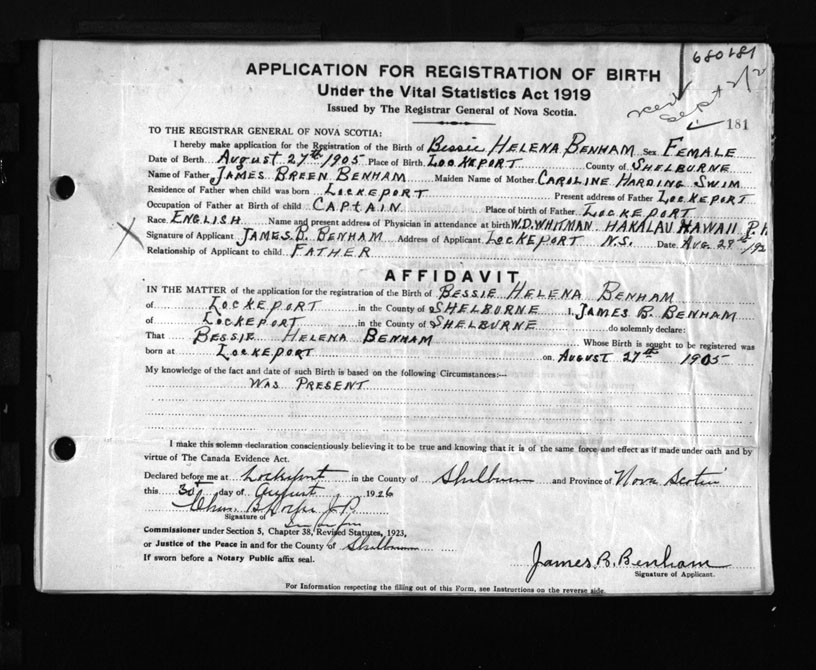 680181
APPLICATION FOR REGISTRATION OF BIRTH
Under the Vital Statistics Act 1919
Issued by The Registrar General of Nova Scotia.
Sept
181
TO THE REGISTRAR GENERAL OF NOVA SCOTIA:
I hereby make application for the Registration of the Birth of Bessie HELENA BENHAM Sex FEMALE
Date of Birth August 27th 1905 Place of Birth LOCKEPORT County of SHELBURNE
Name of Father JAMES BREEN BENHAM Maiden Name of Mother CAROLINE HARDING SWIM
Residence of Father when child was born LOCKEPORT Present address of Father LOCKEPORT
Occupation of Father at Birth of child CAPTAIN Place of birth of Father LOCKEPORT
Race ENGLISH Name and present address of Physician in attendance at birth W.D. WHITMAN HAKALAU HAWAII
Signature of Applicant JAMES B. BENHAM Address of Applicant LOCKEPORT N.S. Date AUG. 28th 192
Relationship of Applicant to child FATHER
AFFIDAVIT
IN THE MATTER of the application for the registration of the Birth of BESSIE HELENA BENHAM
of LOCKEPORT in the County of SHELBORNE I, JAMES B. BENHAM
of LOCKEPORT in the County of SHELBURNE do solemnly declare:
That BESSIE HELENA BENHAM Whose Birth is sought to be registered was
born at LOCKEPORT on AUGUST 27th 1905
My knowledge of the fact and date of such Birth is based on the following Circumstances:—
WAS PRESENT
I make this solemn declaration conscientiously believing it to be true and knowing that it is of the same force and effect as if made under oath and by
virtue of The Canada Evidence Act.
Declared before me at Lockeport in the County of Shelburne and Province of Nova Scotia
this 30th day of August 1926
J.P.
Signature of
Commissioner under Section 5, Chapter 38, Revised Statutes, 1923,
or Justice of the Peace in and for the County of Shelburne
If sworn before a Notary Public affix seal.
James. B. Benham
Signature of Applicant.
For Information respecting the filling out of this Form, see Instructions on the reverse side.